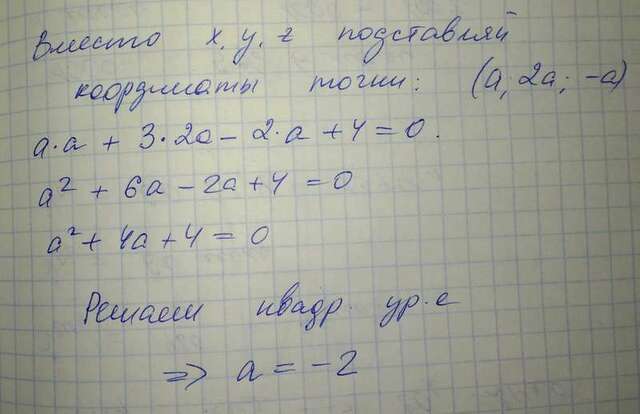 Вместо x, y, z подставляй
координаты точки: (a; 2a; -a)
a·a + 3·2a - 2·a + 4 = 0.
a² + 6a - 2a + 4 = 0
a² + 4a + 4 = 0
Решаем квадр. ур-е
=> a = -2